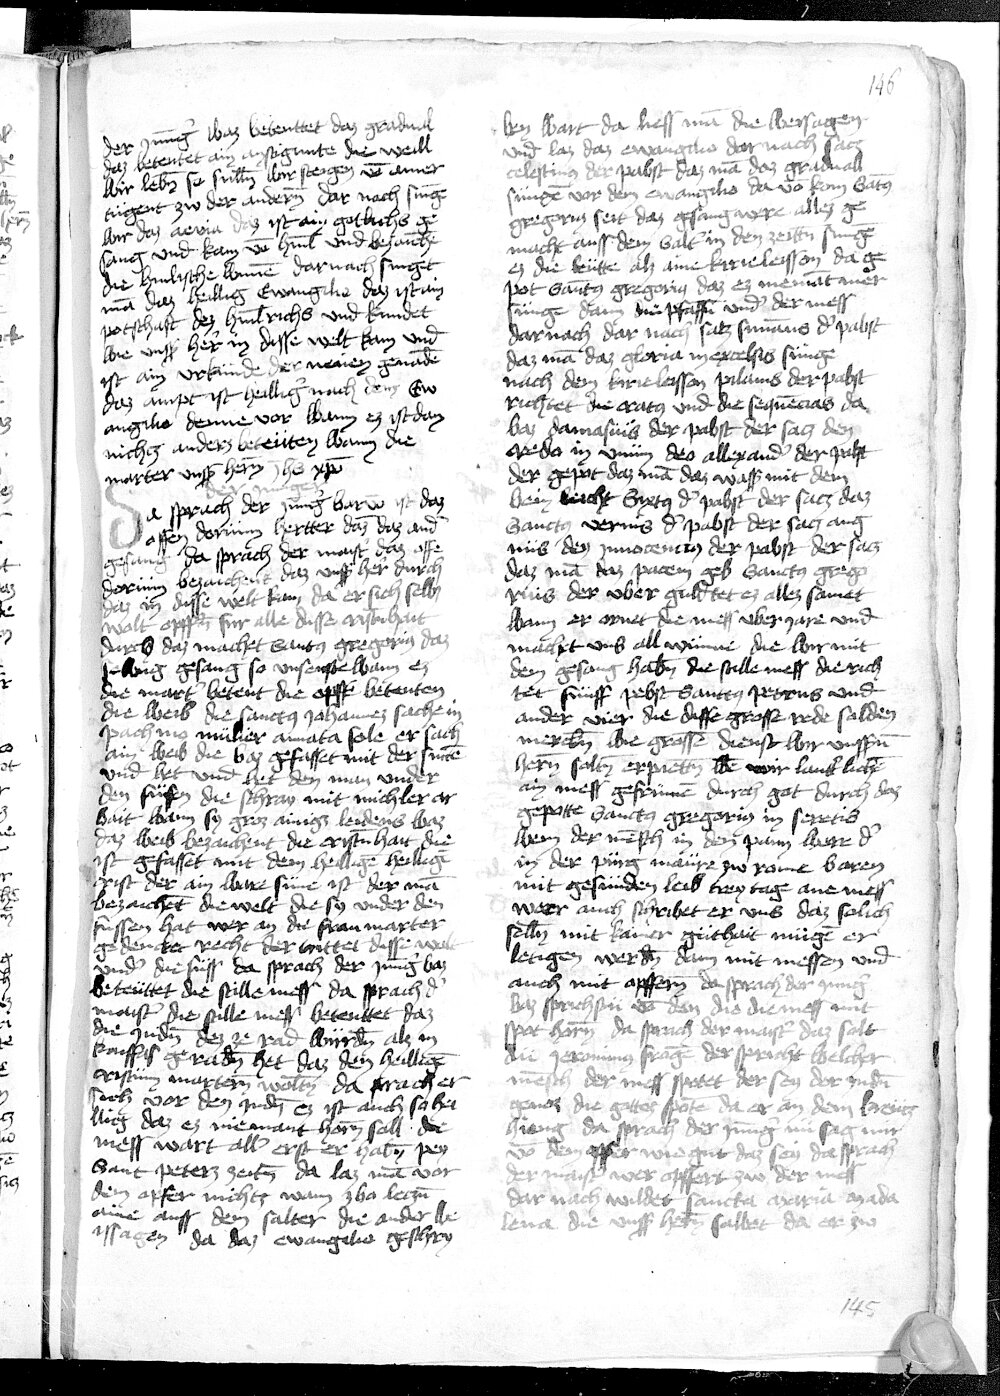 146
der jung̾ waz betenttet daz gradual
daz betentet ain anfegunte die weill
wir lebn̄ so sulln̄ wir steigen vō ainer
tugent zw der andern̄ dar nach sing
wir daz aevia daz ist ain gotlichs ge
sang und kam vō himl und bezaichē
die himlische wunē darnach singet
mā daz heilig Ewangilio daz ist ain
potschaft dez himlrichs und kundet
wie unsß her in disse welt kam und
ist ain urkunde der neuen genade
daz ampt ist heillig̾ nach dem Ew
angilio denne vor wann ez ist dan
nichtz anders beteuten wann die
marter unsß hern̄ jhs xpō
Da sprach der jung̾ barw ist daz
offen dorium hertter daz daz and̾
gesang da sprach der maist̾ daz offe
dorium bezaichent daz unsß her durch
daz in disse welt kam da er sich selb
wolt opffn̄ fur alle disse cristnhait
durch daz machet Santꝯ gregoriꝯ daz
selbig gesang so unsenfte wann ez
die mart̾ betent die opff̾ betenten
die weib die sanctꝯ johannez sache in
pachmo mulier amata sole er sach
ain weib die waz gefasset mit der sune
und het und het den man under
den fussen die schray mit michler ar
bait wann sy groz ainigs leidens waz
daz weib bezaichent die cristnhait die
ist gefasset mit dem heillige heillige
crist der ain ware sune ist der mā
bezaichet die welt die sy under den
fussen hat wer an die frau marter
gedencket recht der trittet disse welt
und̾ die fuss da sprach der jung̾ waz
beteuttet die stille mess da sprach d̾
maist̾ die stille mess betenttet daz
die judn̄ dez ze rad wurdn̄ alz in
kaysfas geradn̄ het daz den heillige
cristum martern̄ woltn̄ da sprach er
sich vor den judn̄ ez ist auch so hei
llig daz ez niemant horn̄ soll die
mess wart all̾ erst er habn̄ pey
Sant peters zeitn̄ da laz mā vor
dem opfer nichts wann zwo leczn
aine auss dem salter die ander we
issagen da daz ewangilio geschry
ben wart da liess mā die weissagen
und laz daz ewangilio darnach sacz
celestinꝯ der pabst daz mā daz graduall
singē vor dem ewangilio da vō kam Santꝯ
gregoriꝯ seit daz gesang were allez ge
macht auss dem salt̾ in den zeitn̄ singē
ez die leutte alz aine kirieleisson da ge
pot Santꝯ gregoriꝯ daz ez niemāt mer
singe dann die pfaffn̄ und̾ der mess
darnach dar nach sacz simāus d̾ pabst
daz mā daz gloria in excelsis singe
nach dem kirieleisson pilaius der pabst
richtet die cratꝯ und die sequēcias da
waz damasius der pabst der sacz den
credo in unum deo allexand̾ der pabst
der gepot daz mā daz wass mit dem
wein Sixtꝯ d̾ pabst der sacz daz
Sanctꝯ vernis d̾ pabst der sacz ang
nus den Innocenciꝯ der pabst der sacz
daz mā daz pacem geb Sanctꝯ grego
rius der uber guldtet ez allez samet
wann er ornet die mess uber jare und
machet uns all wunne die wir mit
dem gesang habn̄ die stille mess die rich
tet funff pebst Sanctꝯ petrus und
ander vier die disse grosse rede solden
merckn̄ wie grosse dienst wir unssrn̄
hern̄ soltn̄ erpietn̄ wē wir lautlichē
ain mess gefrumē durch got durch daz
gepotte Sanctꝯ gregoriꝯ in seretis
wem der mēsch in dem pann were d̾
in der purg maure zw rome waren
mit gesunden leib trey tage ane mess
wer auch schribet er uns daz solich
selln̄ mit kainer guthait mugē er
letigen werdn̄ dann mit messen und
auch mit opffern̄ da sprach der jung̾
waz sprichstu vō den die die mess mit
spot horn̄ da sprach der maist̾ daz solt
du jeronimꝯ fragē der spricht welcher
mēsch der mess spotet der sey der judn̄
genoz die gottes spotē da er an dem kreucz
hieng da sprach der jung̾ nu sag mir
vō dem opfer wie gut daz sey da sprach
der maist̾ wer opffert zw der mess
dar nach wildet sancta maria mada
lena die unsß hern̄ salbet da er zw
145